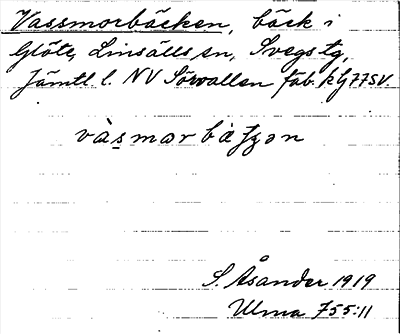 Vassmorbäcken, bäck i
Glöte, Linsälls sn, Svegs tg,
Jämtl. l. NV Sörvallen fäb. kbj 77SV.
vàsmorbä
S. Åsander 1919
Ulma 755:11